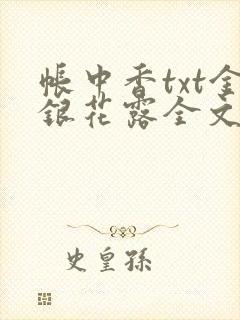 帐中香txt金
银花露全文
史皇孫